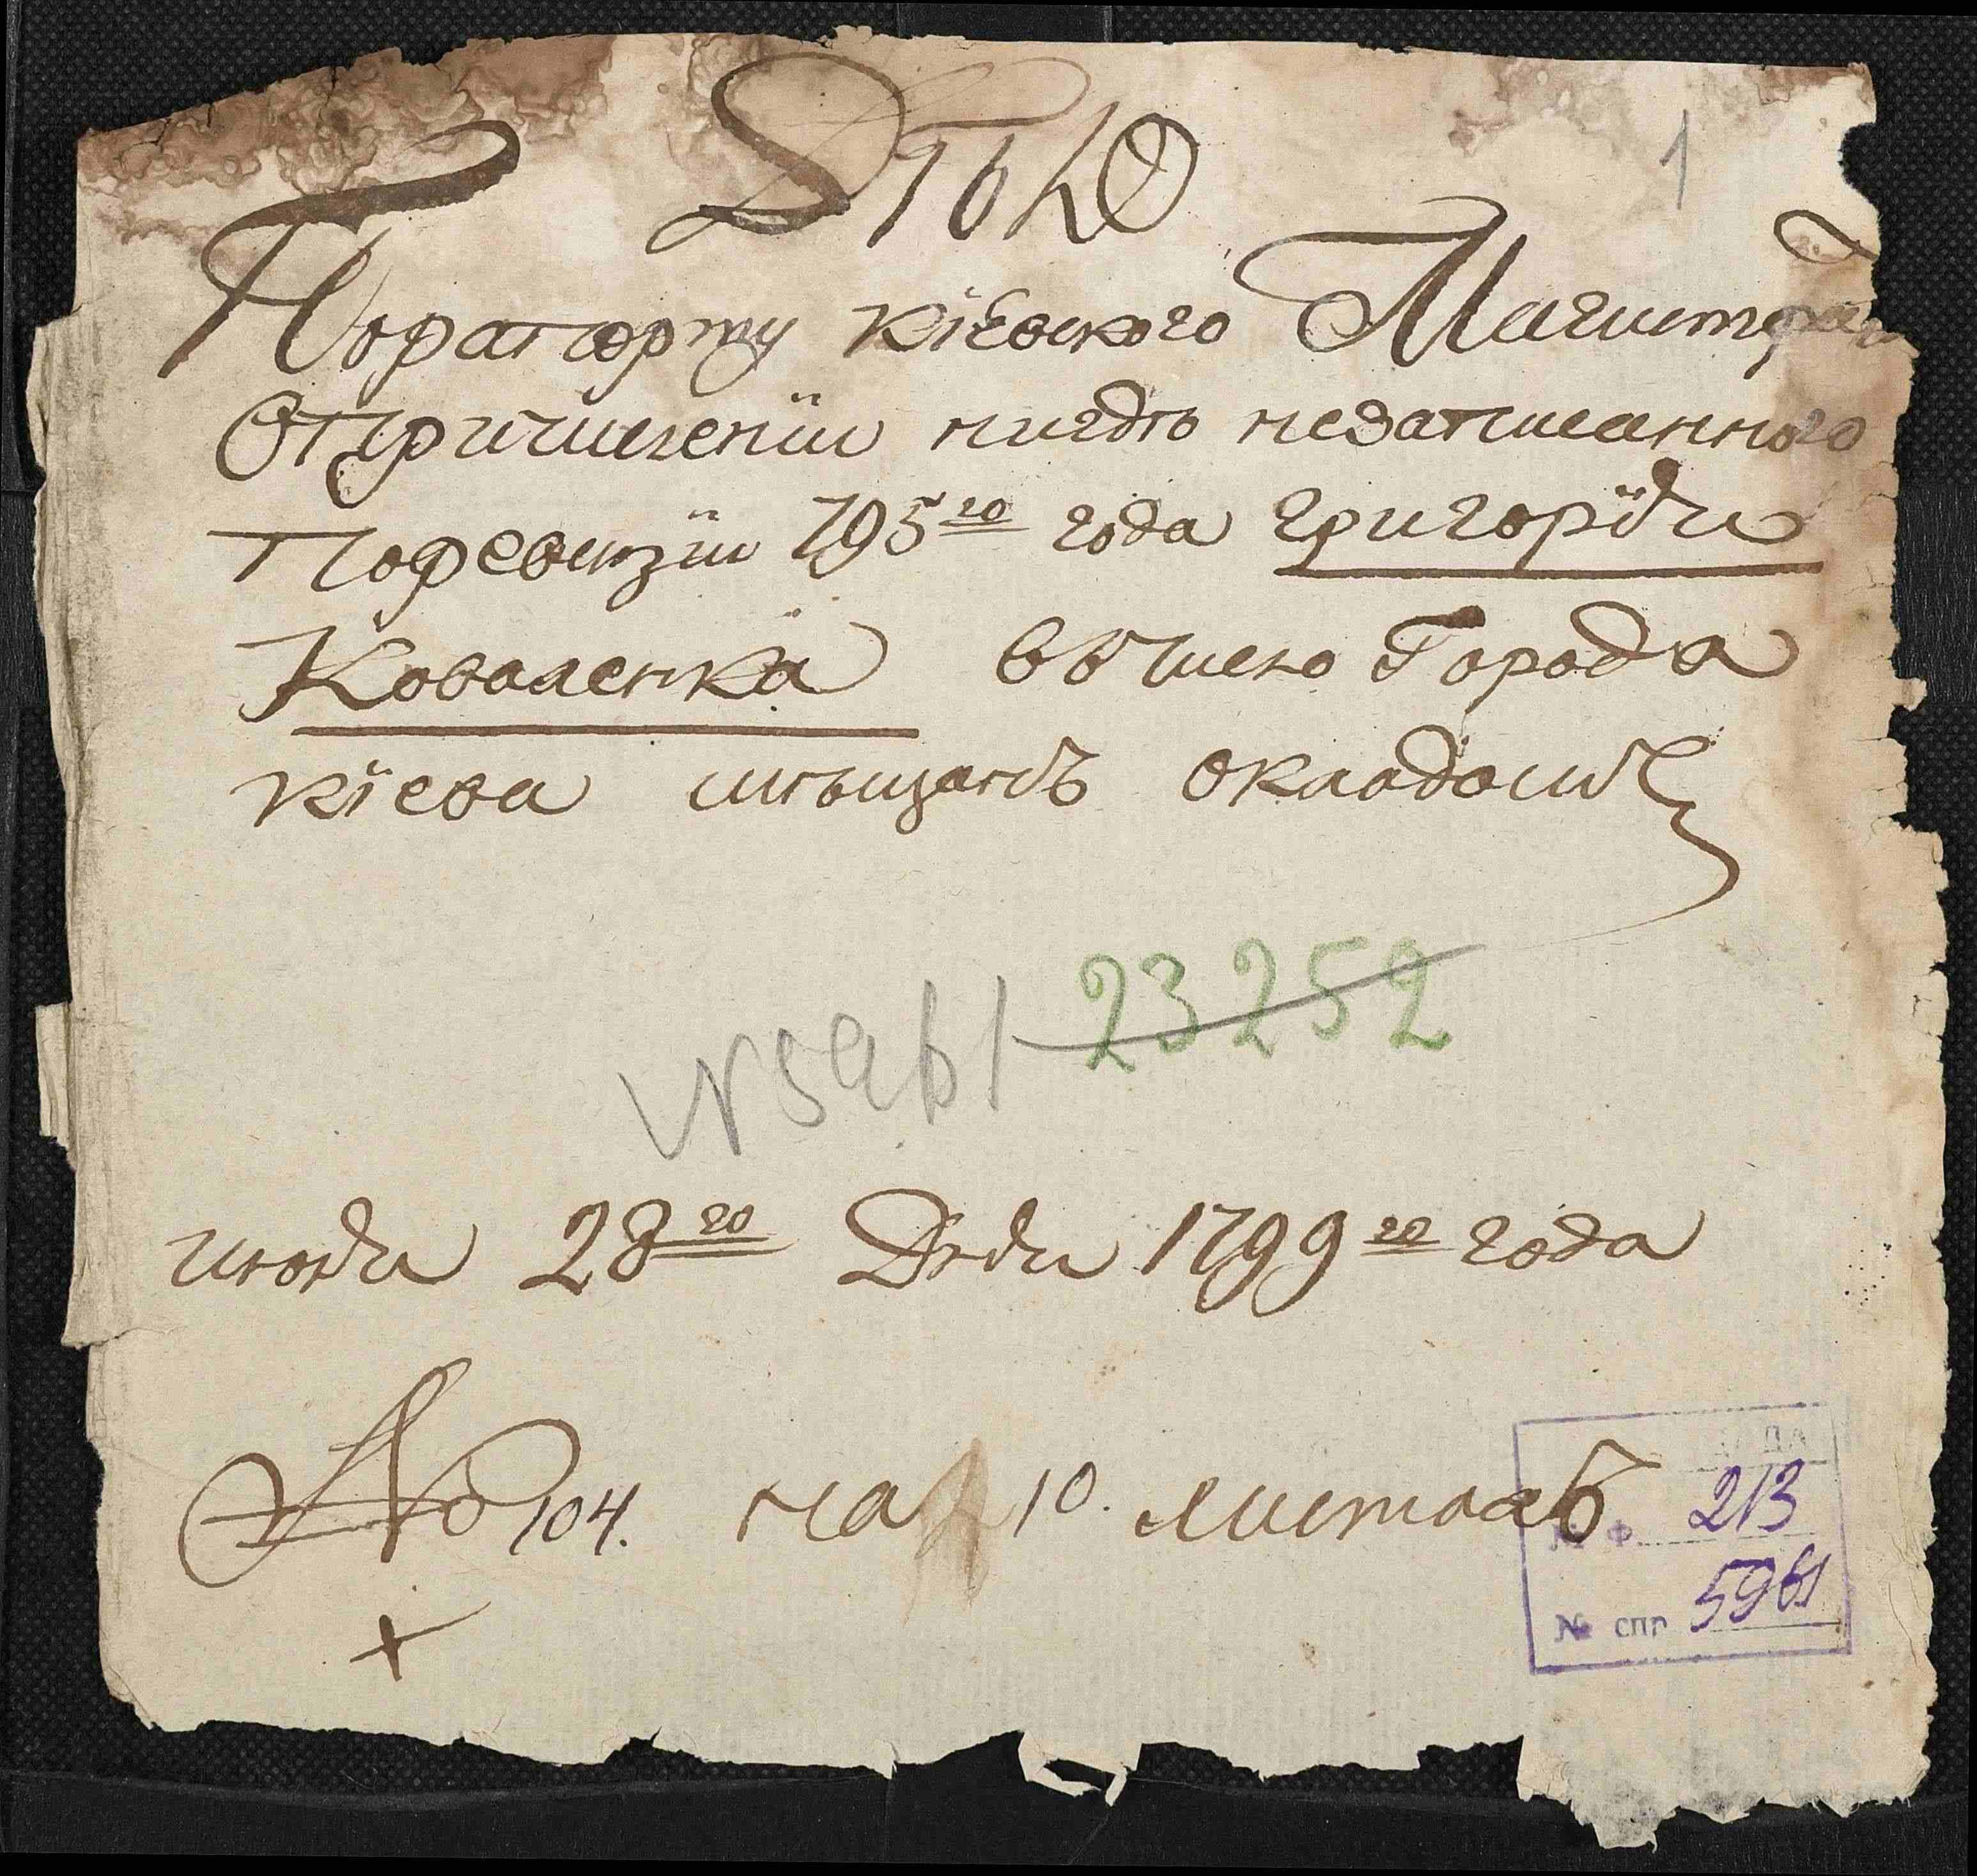 Дѣло
1
По рапорту кіевского Магистра
О причислении нигдѣ незаписанного
По ревизии 795го года григорія
Коваленка въ число Города
кіева мѣщанъ окладомъ
№ 5961 23252
июня 28го Дня 1799го года
№ 104. на 10. листахъ
ЦДІА
№ ф. 213
№ спр 5961